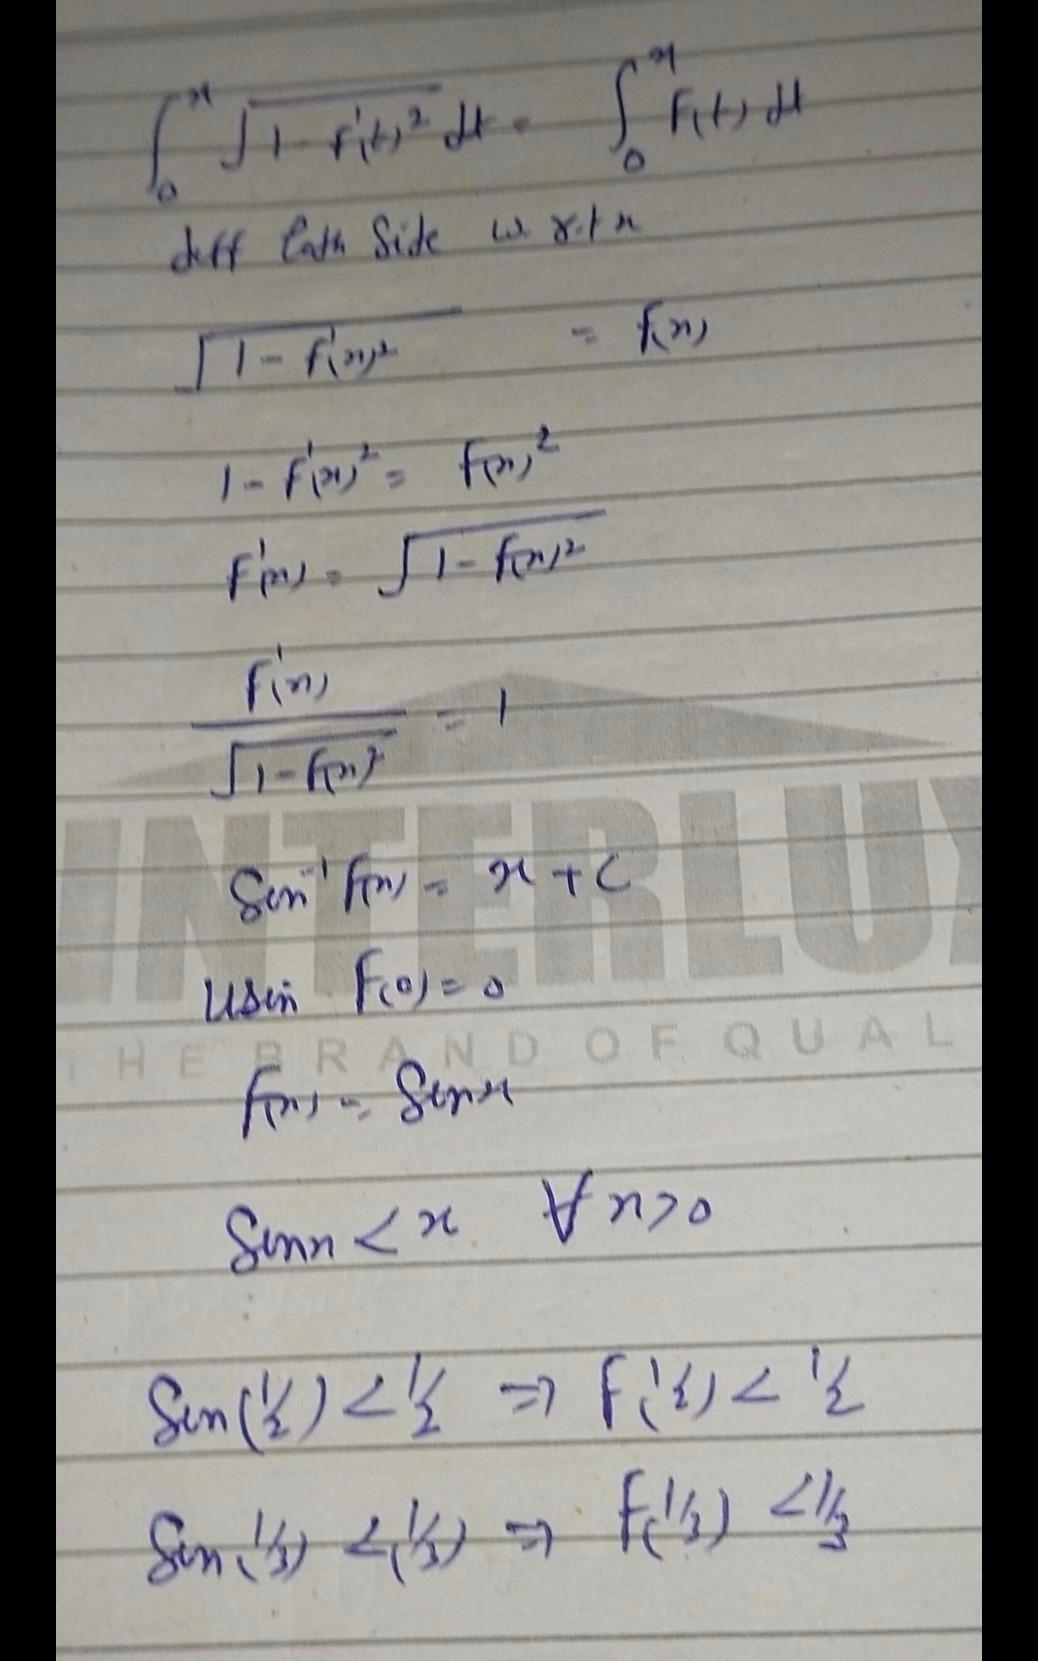 ∫₀ˣ √(1 - f'(t)²) dt = ∫₀ˣ f(t) dt
diff both Side w.r.t x
√(1 - f'(x)²) = f(x)
1 - f'(x)² = f(x)²
f'(x) = √(1 - f(x)²)
f'(x) / √(1 - f(x)²) = 1
INTERLUX
Sin⁻¹ f(x) = x + c
Usin f(0) = 0
THE BRAND OF QUAL
f(x) = Sin x
Sin x < x ∀ x > 0
Sin(1/2) < 1/2 ⇒ f(1/2) < 1/2
Sin(1/3) < (1/3) ⇒ f(1/3) < 1/3